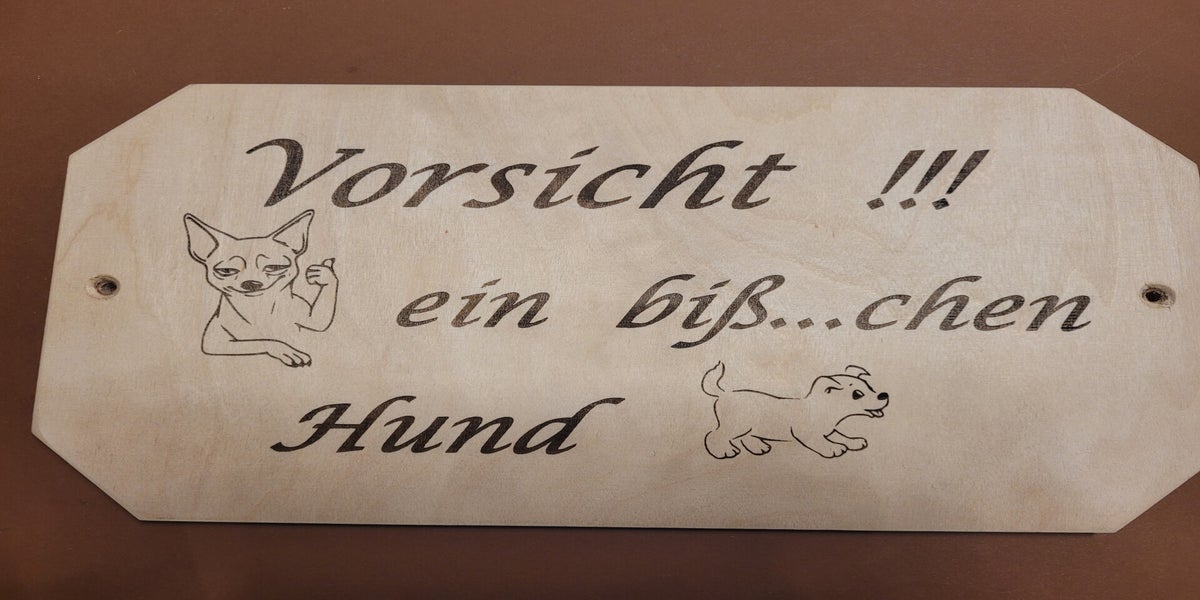 Vorsicht !!!
ein biß...chen
Hund